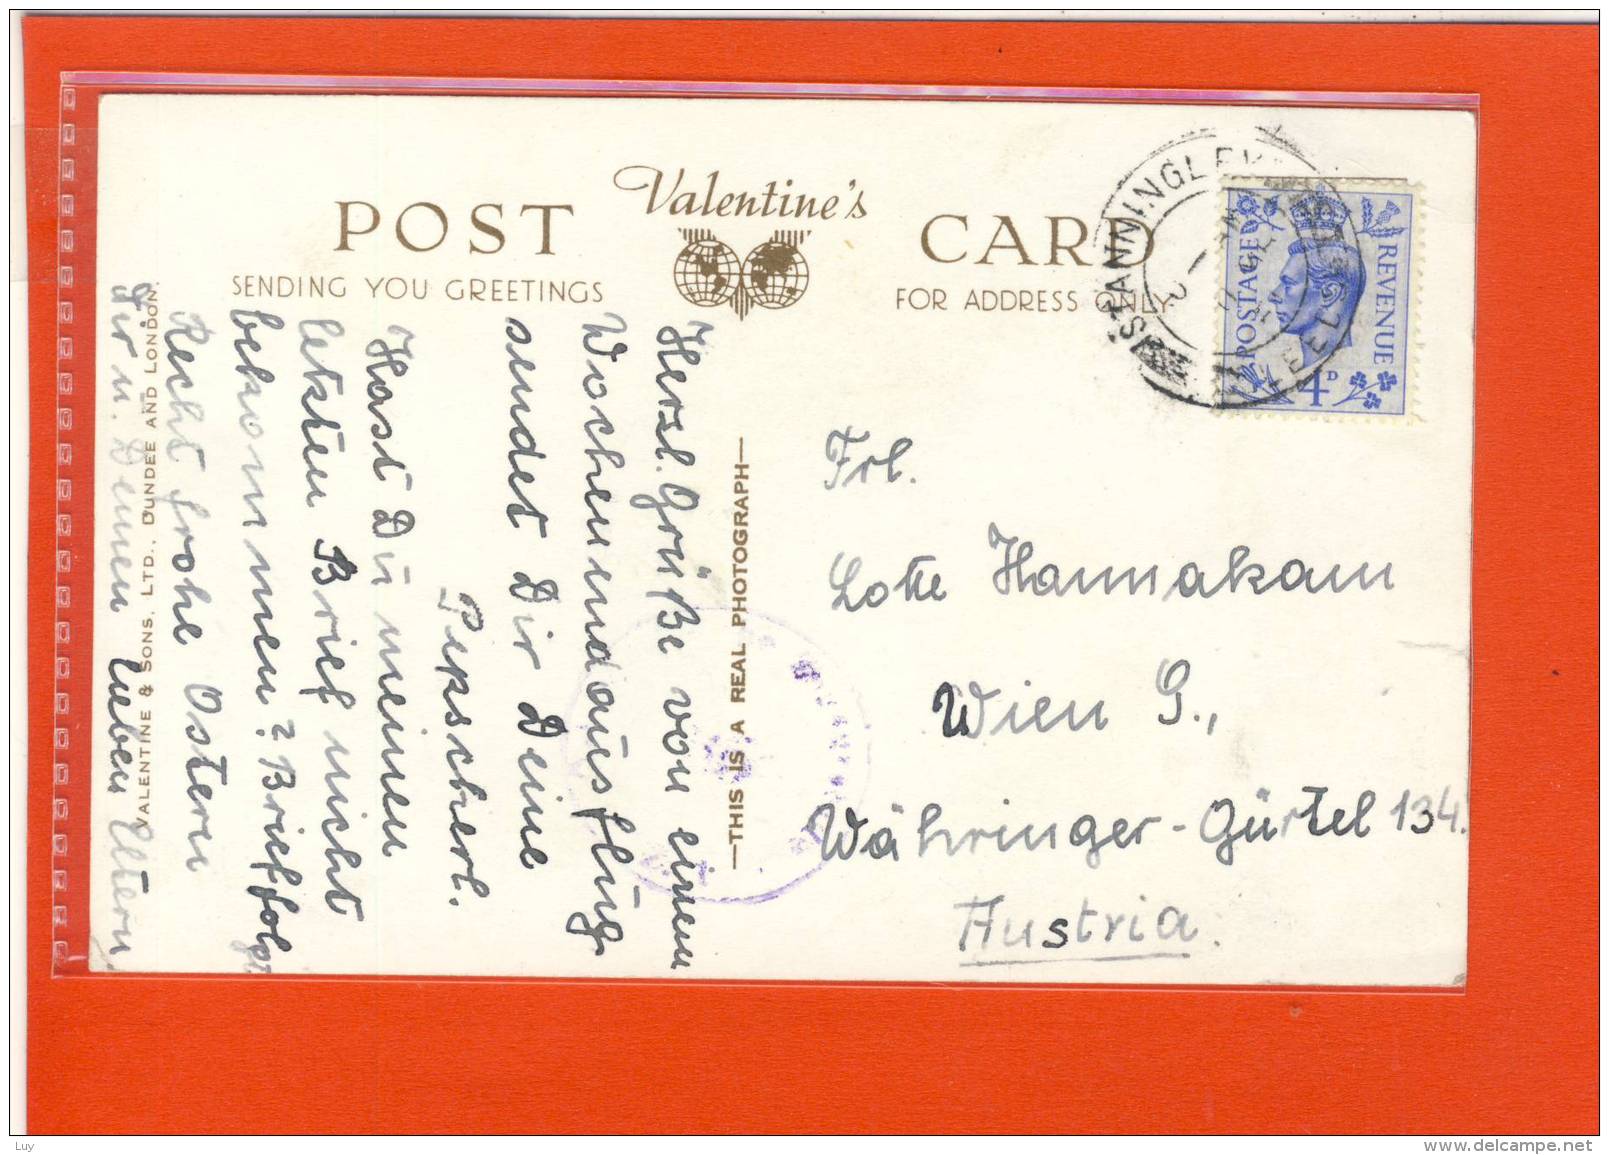 POST Valentine's CARD
SENDING YOU GREETINGS
FOR ADDRESS ONLY
Herzl. Grüße von einem
Wochenendausflug
sendet Dir Deine
Pepscherl.
Hast Du meinen
letzten Brief nicht
bekommen? Brief folgt.
Recht frohe Ostern
Dir u. Deinen lieben Eltern.
VALENTINE & SONS. LTD., DUNDEE AND LONDON.
—THIS IS A REAL PHOTOGRAPH—
STANNINGLEY
LEEDS
POSTAGE REVENUE
4D
Frl.
Lotte Hannakam
Wien 9.,
Währinger-Gürtel 134.
Austria.
Luy
www.delcampe.net